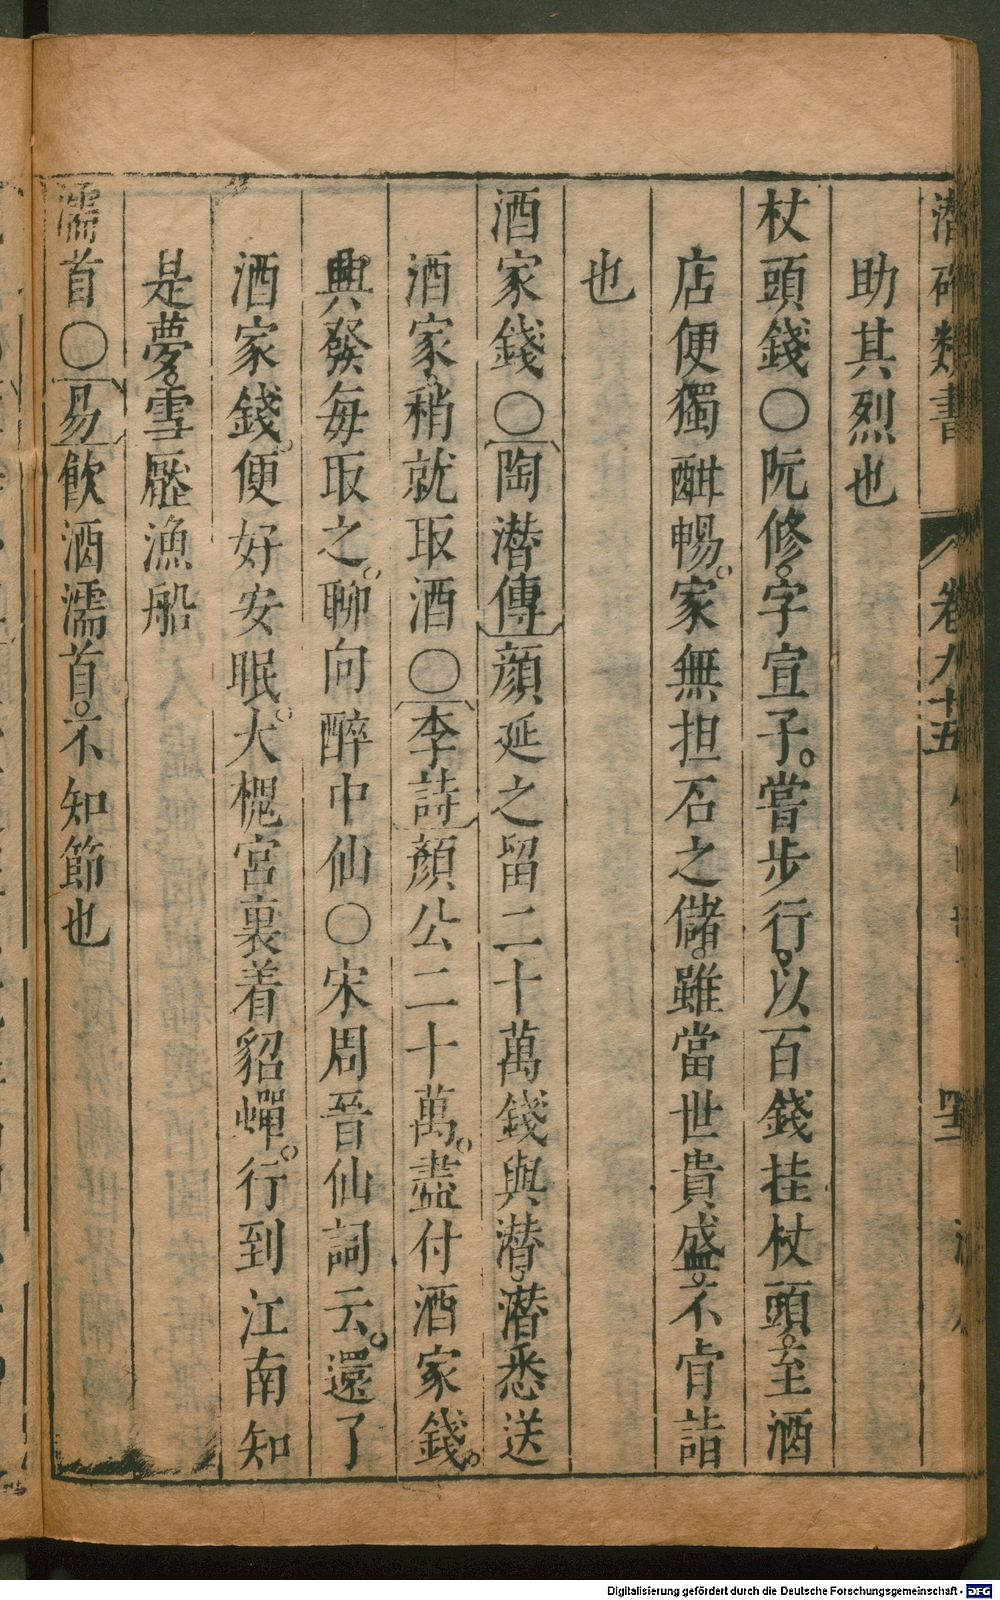 潛確類書 卷九十五
助其烈也
杖頭錢〇阮修。字宣子。嘗步行。以百錢挂杖頭。至酒
店便獨酣暢。家無担石之儲。雖當世貴盛。不肯詣
也
酒家錢〇陶潛傳顔延之留二十萬錢與潛。潛悉送
酒家。稍就取酒〇李詩顏公二十萬。盡付酒家錢。
興發每取之。聊向醉中仙〇宋周晉仙詞云。還了
酒家錢。便好安眠。大槐宮裏着貂蟬。行到江南知
是夢。雪壓漁船
濡首〇易飲酒濡首。不知節也
Digitalisierung gefördert durch die Deutsche Forschungsgemeinschaft - DFG